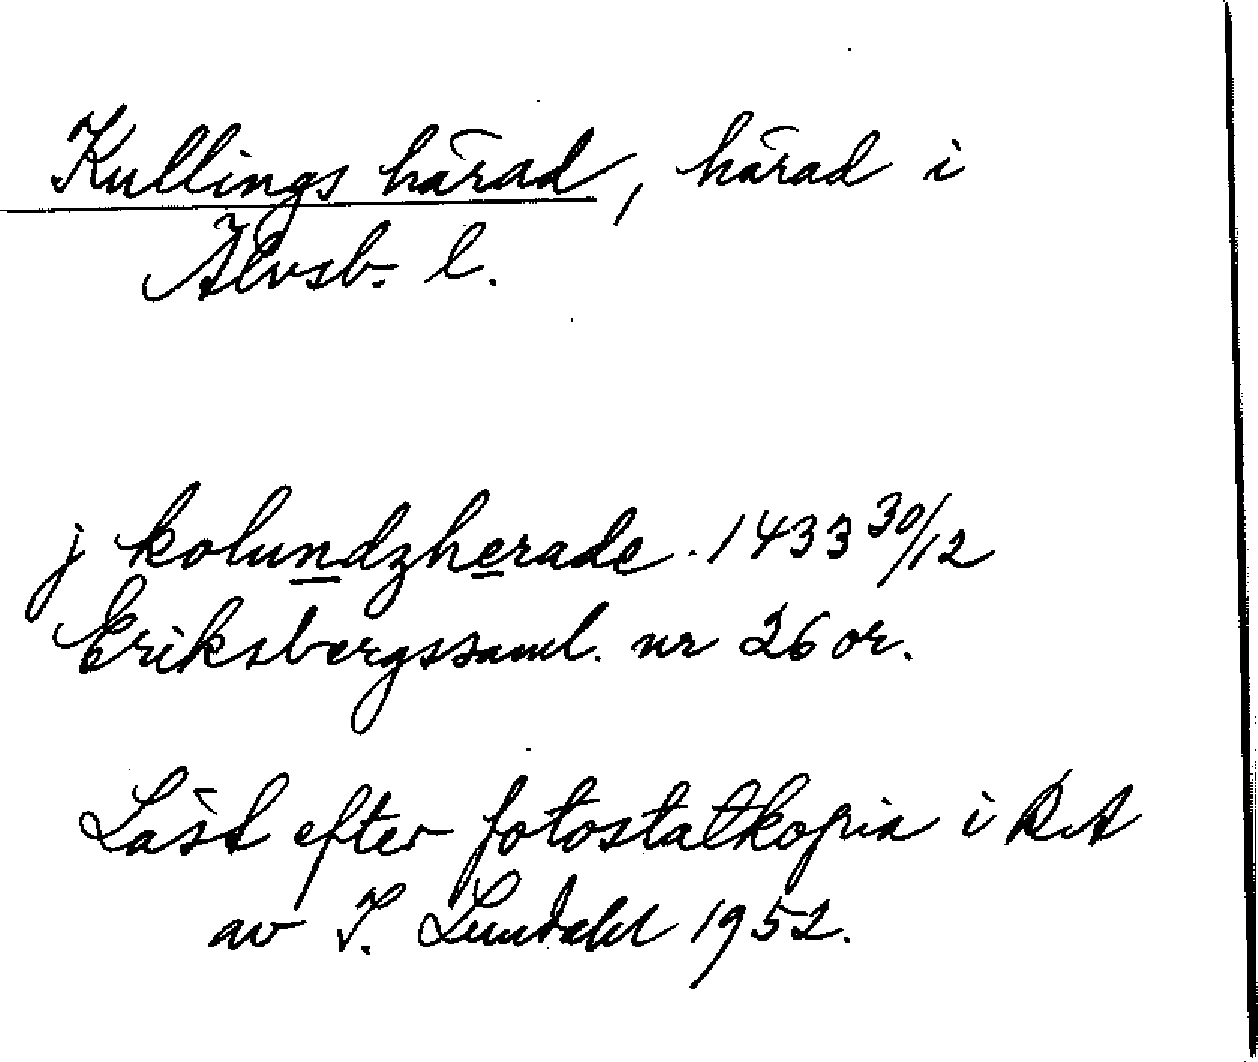 Kullings härad, härad i
Älvsb. l.
j kolundzherade. 1433 30/12
Eriksbergssaml. nr 26 or.
Läst efter fotostatkopia i RA
av I. Lundahl 1952.